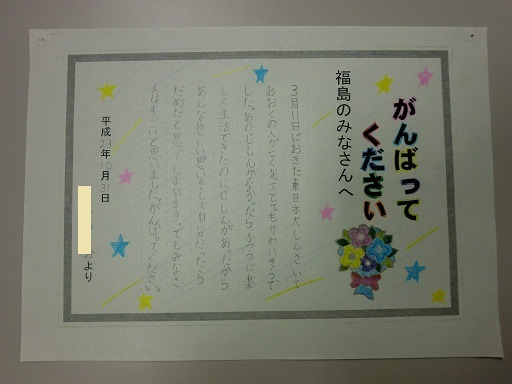 がんばって
ください
福島のみなさんへ
3月11日におきた東日本大しんさいで
おおくの人が亡くなってとてもかわいそうで
した。あのじしんがなかったらふつうに楽
しく生活できたのにじしんがあったから
あんな悲しい思いをして自分だったら
だめだと思ってしまいます。でもみなさ
んはすごいと思いました。がんばってください。
平成23年10月31日
より